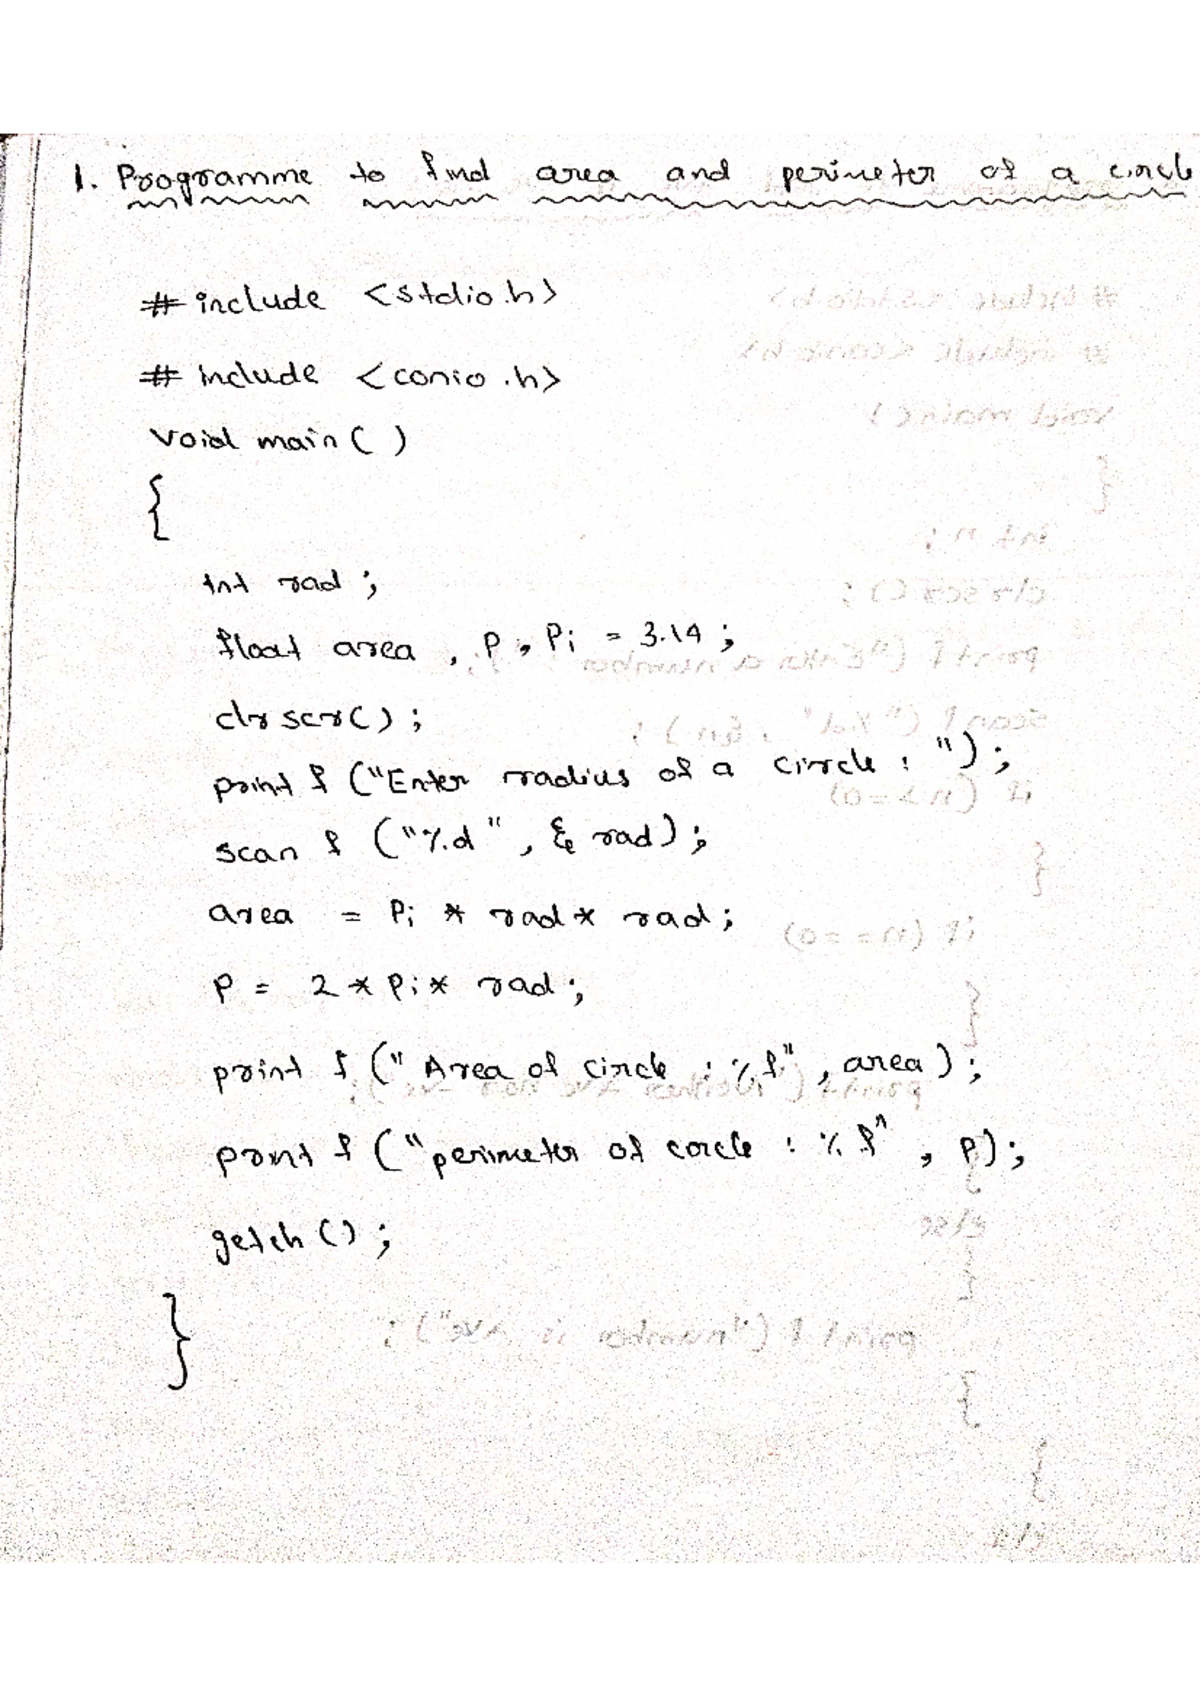 1. Programme to find area and perimeter of a circle
# include <stdio.h>
# include <conio.h>
void main ( )
{
int rad ;
float area , P , Pi = 3.14 ;
clrscr() ;
printf ("Enter radius of a circle : ") ;
scanf ("%d" , & rad) ;
area = Pi * rad * rad ;
P = 2 * Pi * rad ;
printf (" Area of circle : %f" , area ) ;
printf ("perimeter of corcle : %f" , P) ;
getch () ;
}